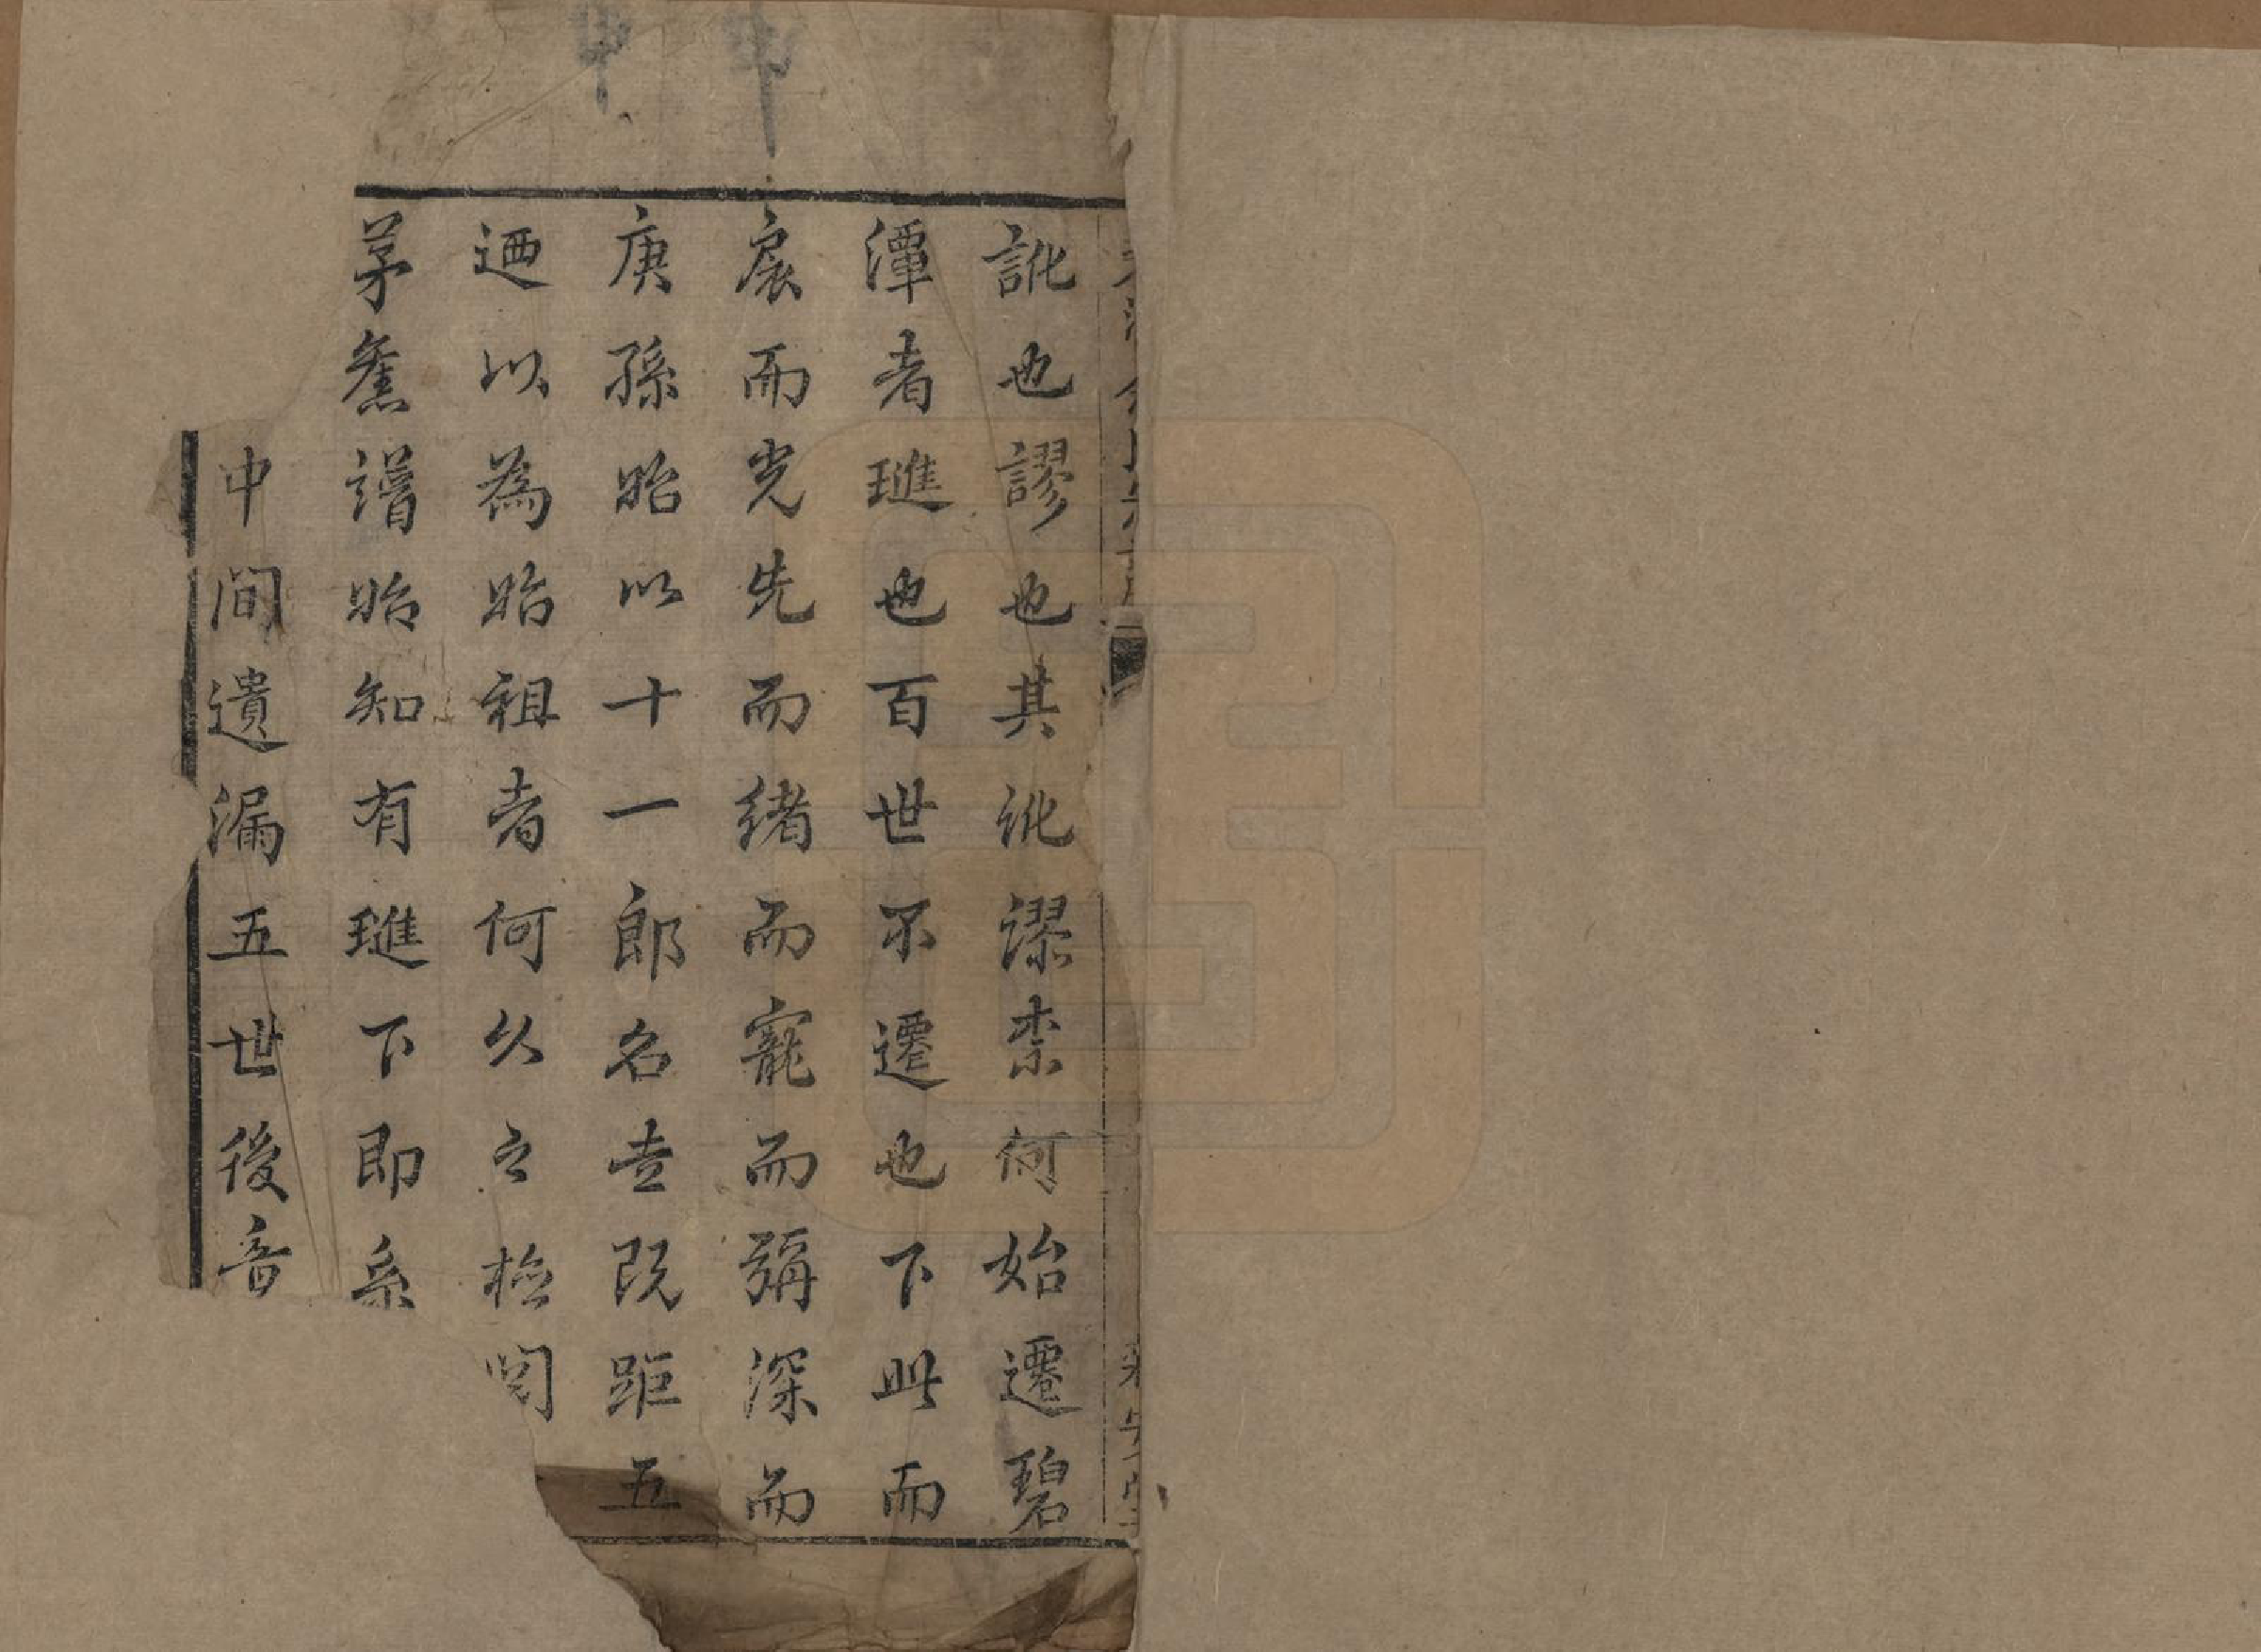 訛也謬也其訛謬柰何始遷碧
潭者璡也百世不遷也下此而
扆而光先而緒而寵而彌深而
庚孫始以十一郎名𠮷既距五
迺以為始祖者何久之檢閱
茅舊譜始知有璡下即系
中間遺漏五世後音